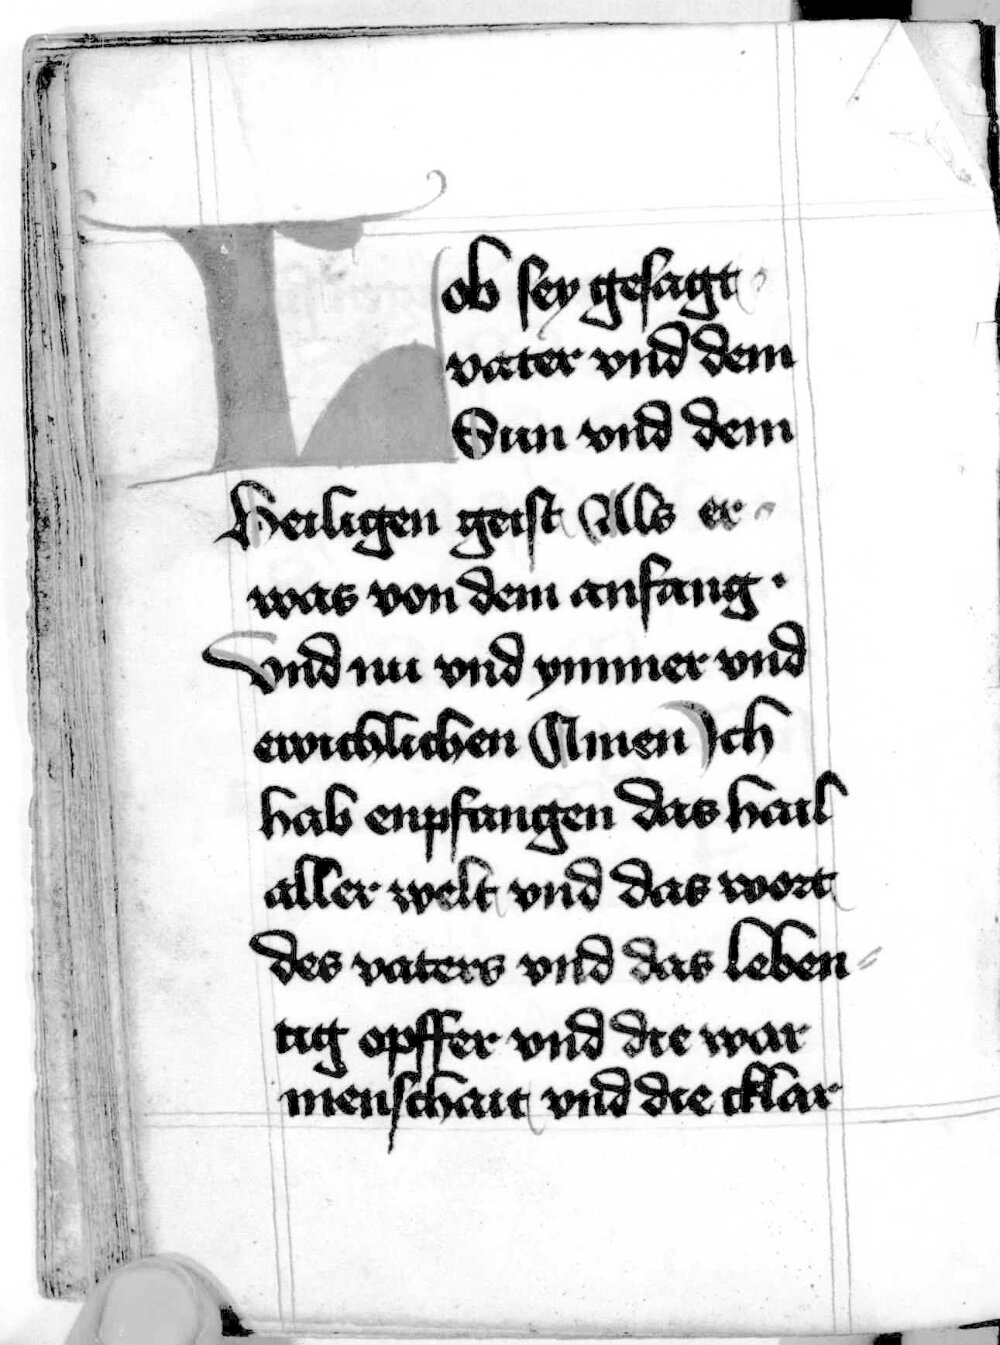 Lob sey gesagt
vater vnd dem
Sun vnd dem
Heiligen geist Als er
was von dem anfang ·
Vnd nu vnd ymmer vnd
ewichlichen Amen Ich
hab enpfangen das hail
aller welt vnd das wort
des vaters vnd das leben⸗
tig opffer vnd die war
menschait vnd die cklar